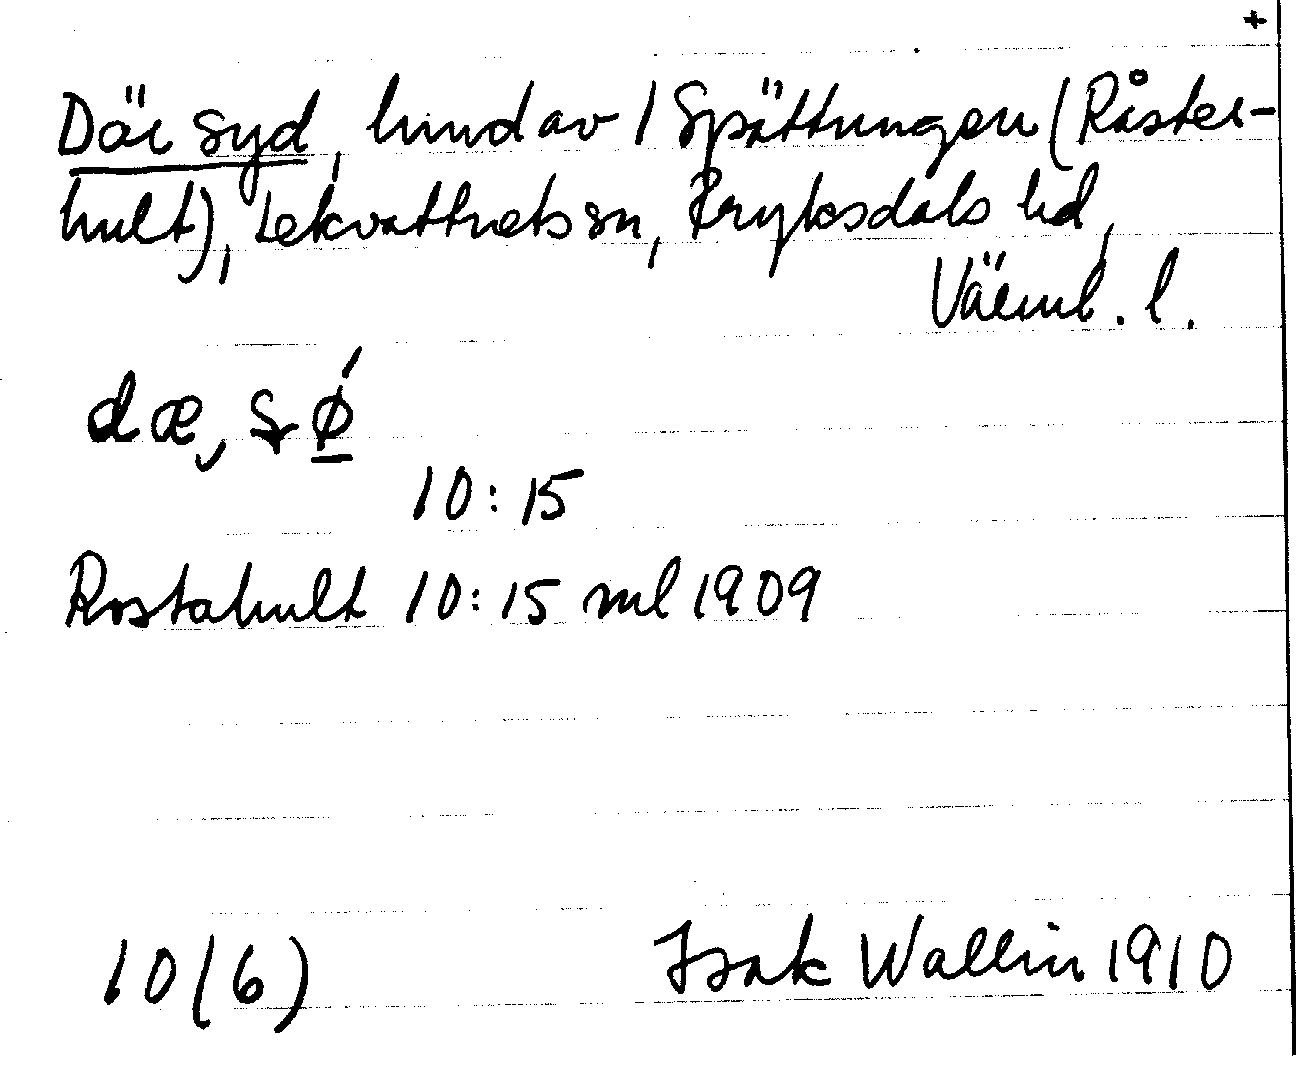 +
Där syd, hmd av 1 Spättungen (Råster-
hult), Lekvattnets sn, Fryksdals hd,
Värml. l.
dæ, sø
10:15
Rostahult 10:15 ml 1909
10(6) Isak Wallin 1910